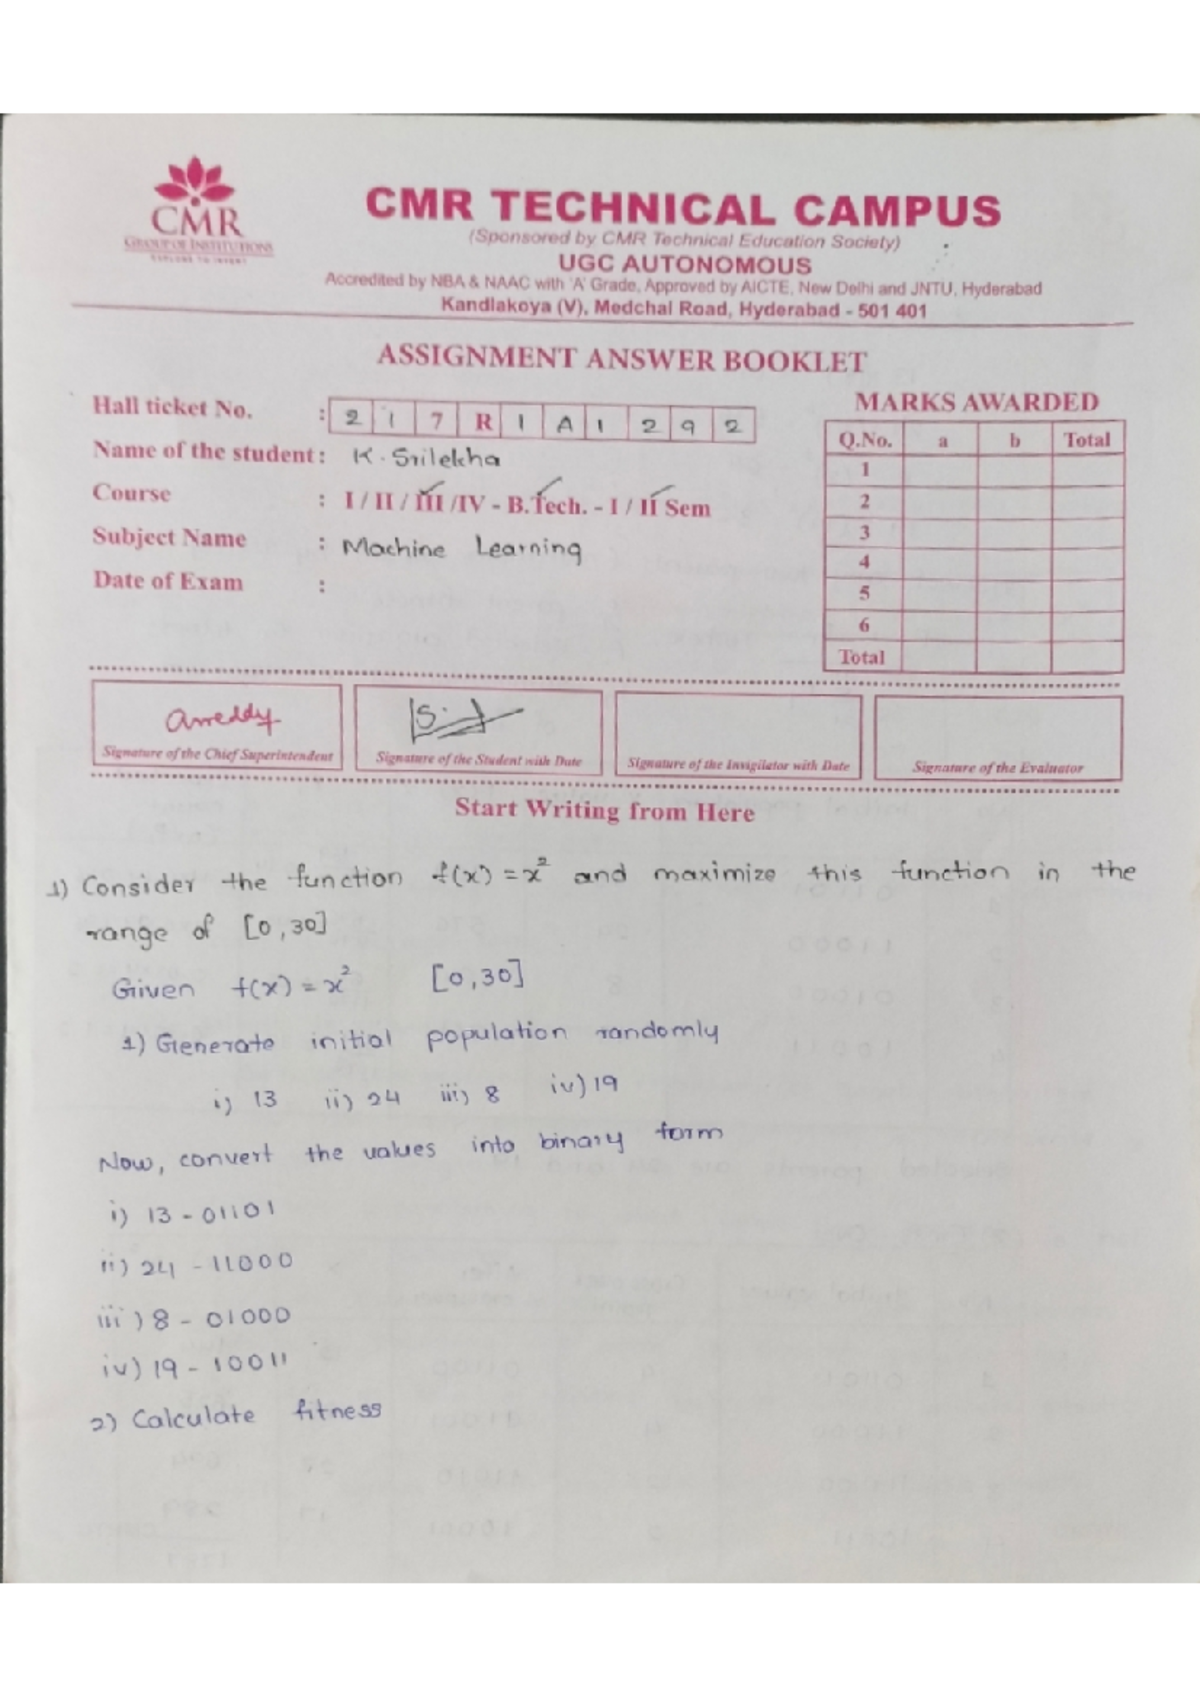 CMR
GROUP OF INSTITUTIONS
EXPLORE TO INVENT
CMR TECHNICAL CAMPUS
(Sponsored by CMR Technical Education Society)
UGC AUTONOMOUS
Accredited by NBA & NAAC with 'A' Grade, Approved by AICTE, New Delhi and JNTU, Hyderabad
Kandlakoya (V), Medchal Road, Hyderabad - 501 401
ASSIGNMENT ANSWER BOOKLET
Hall ticket No. : 2 1 7 R 1 A 1 2 9 2
Name of the student : K. Srilekha
Course : I / II / III /IV - B.Tech. - I / II Sem
Subject Name : Machine Learning
Date of Exam :
MARKS AWARDED
Q.No. a b Total
1
2
3
4
5
6
Total
Signature of the Chief Superintendent
Signature of the Student with Date
Signature of the Invigilator with Date
Signature of the Evaluator
Start Writing from Here
1) Consider the function f(x) = x² and maximize this function in the
range of [0,30]
Given f(x) = x² [0,30]
1) Generate initial population randomly
i) 13 ii) 24 iii) 8 iv) 19
Now, convert the values into binary form
i) 13 - 01101
ii) 24 - 11000
iii) 8 - 01000
iv) 19 - 10011
2) Calculate fitness